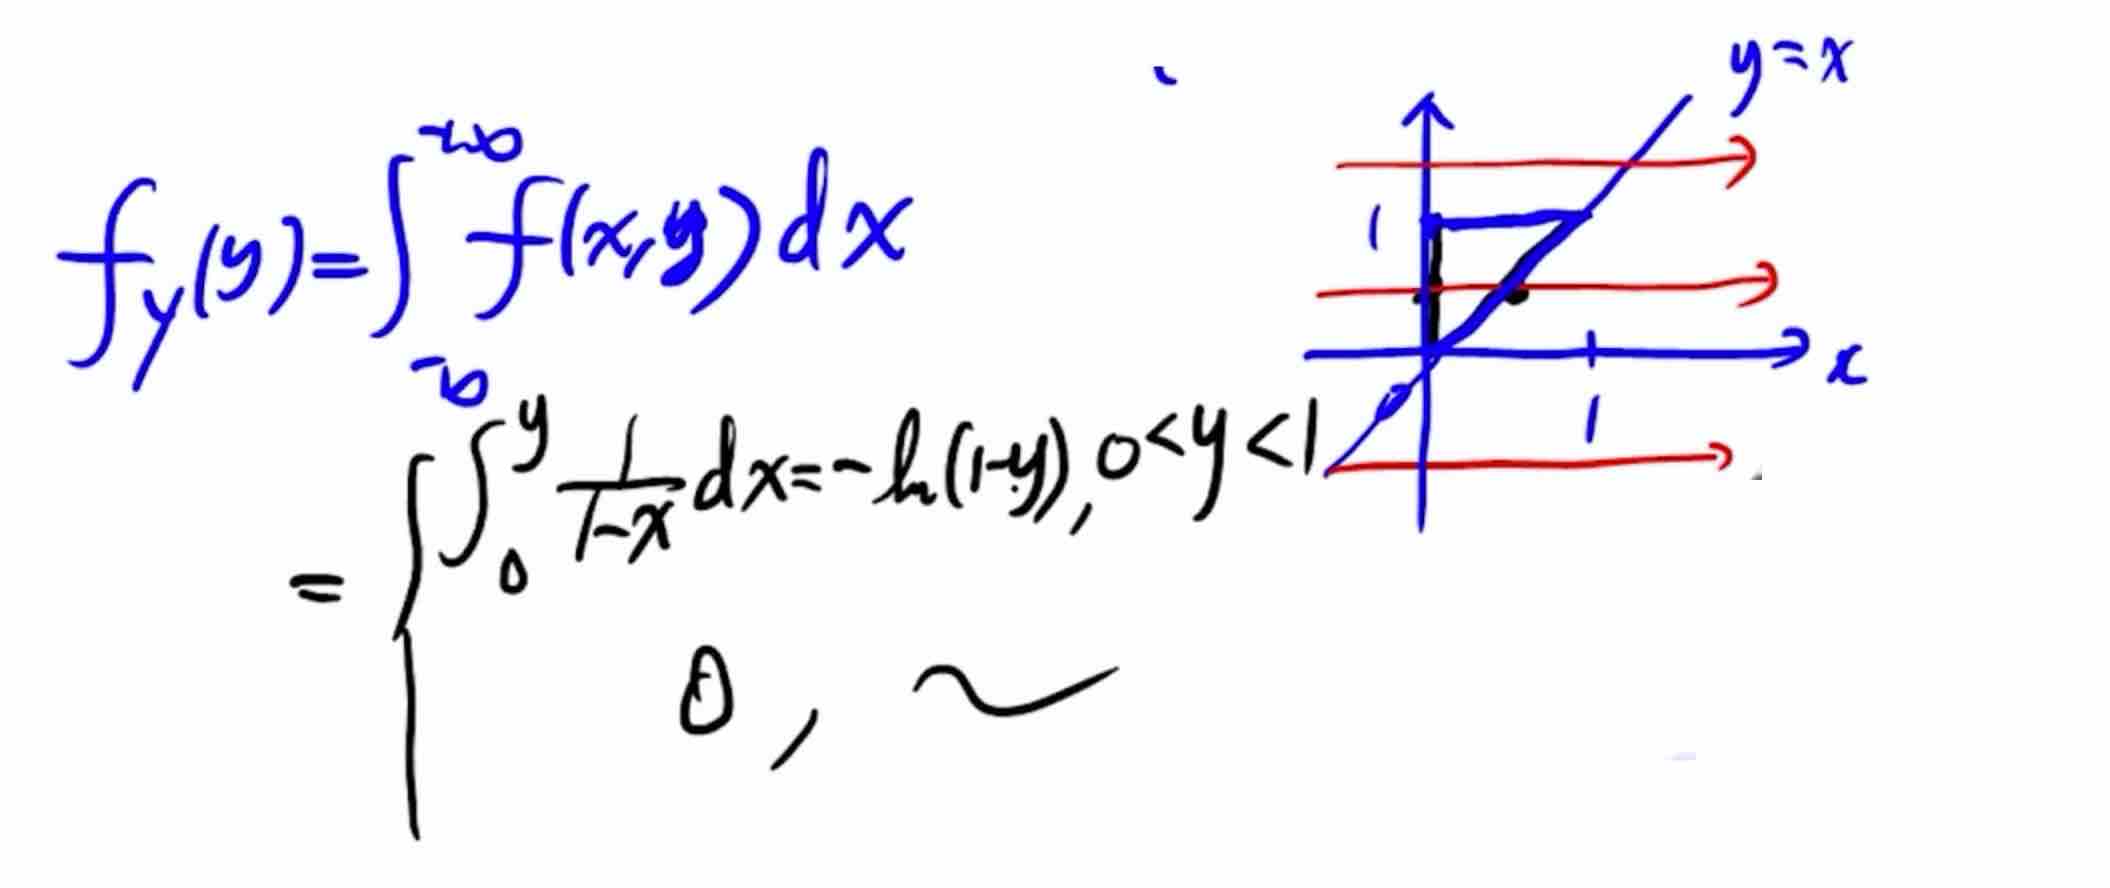 f_Y(y)=∫_{-∞}^{+∞} f(x,y)dx
= { ∫_0^y 1/(1-x) dx = -ln(1-y), 0<y<1
0, ~
y=x
1
x
1